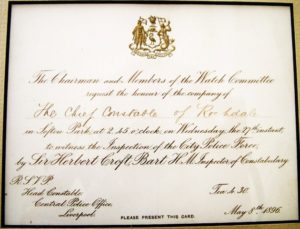 The Chairman and Members of the Watch Committee
request the honour of the company of
The Chief Constable of Rochdale
in Sefton Park, at 2.45 o'clock, on Wednesday, the 27th instant,
to witness the Inspection of the City Police Force,
by Sir Herbert Croft, Bart H.M. Inspector of Constabulary
R.S.V.P.
Tea 4.30
Head Constable,
Central Police Office,
Liverpool.
May 8th 1896.
PLEASE PRESENT THIS CARD.